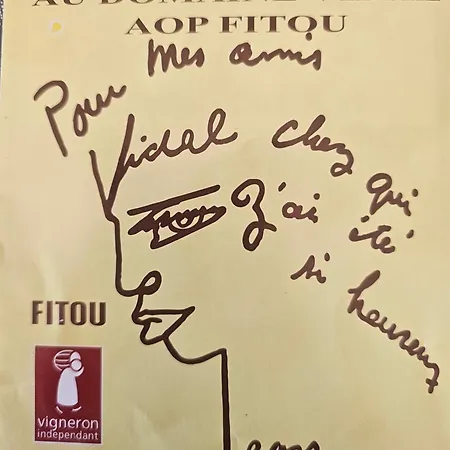 AU DOMAINE
AOP FITOU
Pour mes amis
Vidal chez qui
J'ai été
si heureux
FITOU
vigneron
indépendant